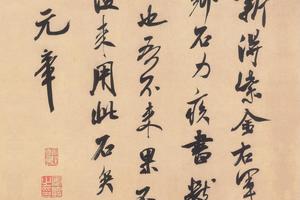 新得紫金右軍
鄉石力疾書數
也吾不來果不
復來用此石矣
元章